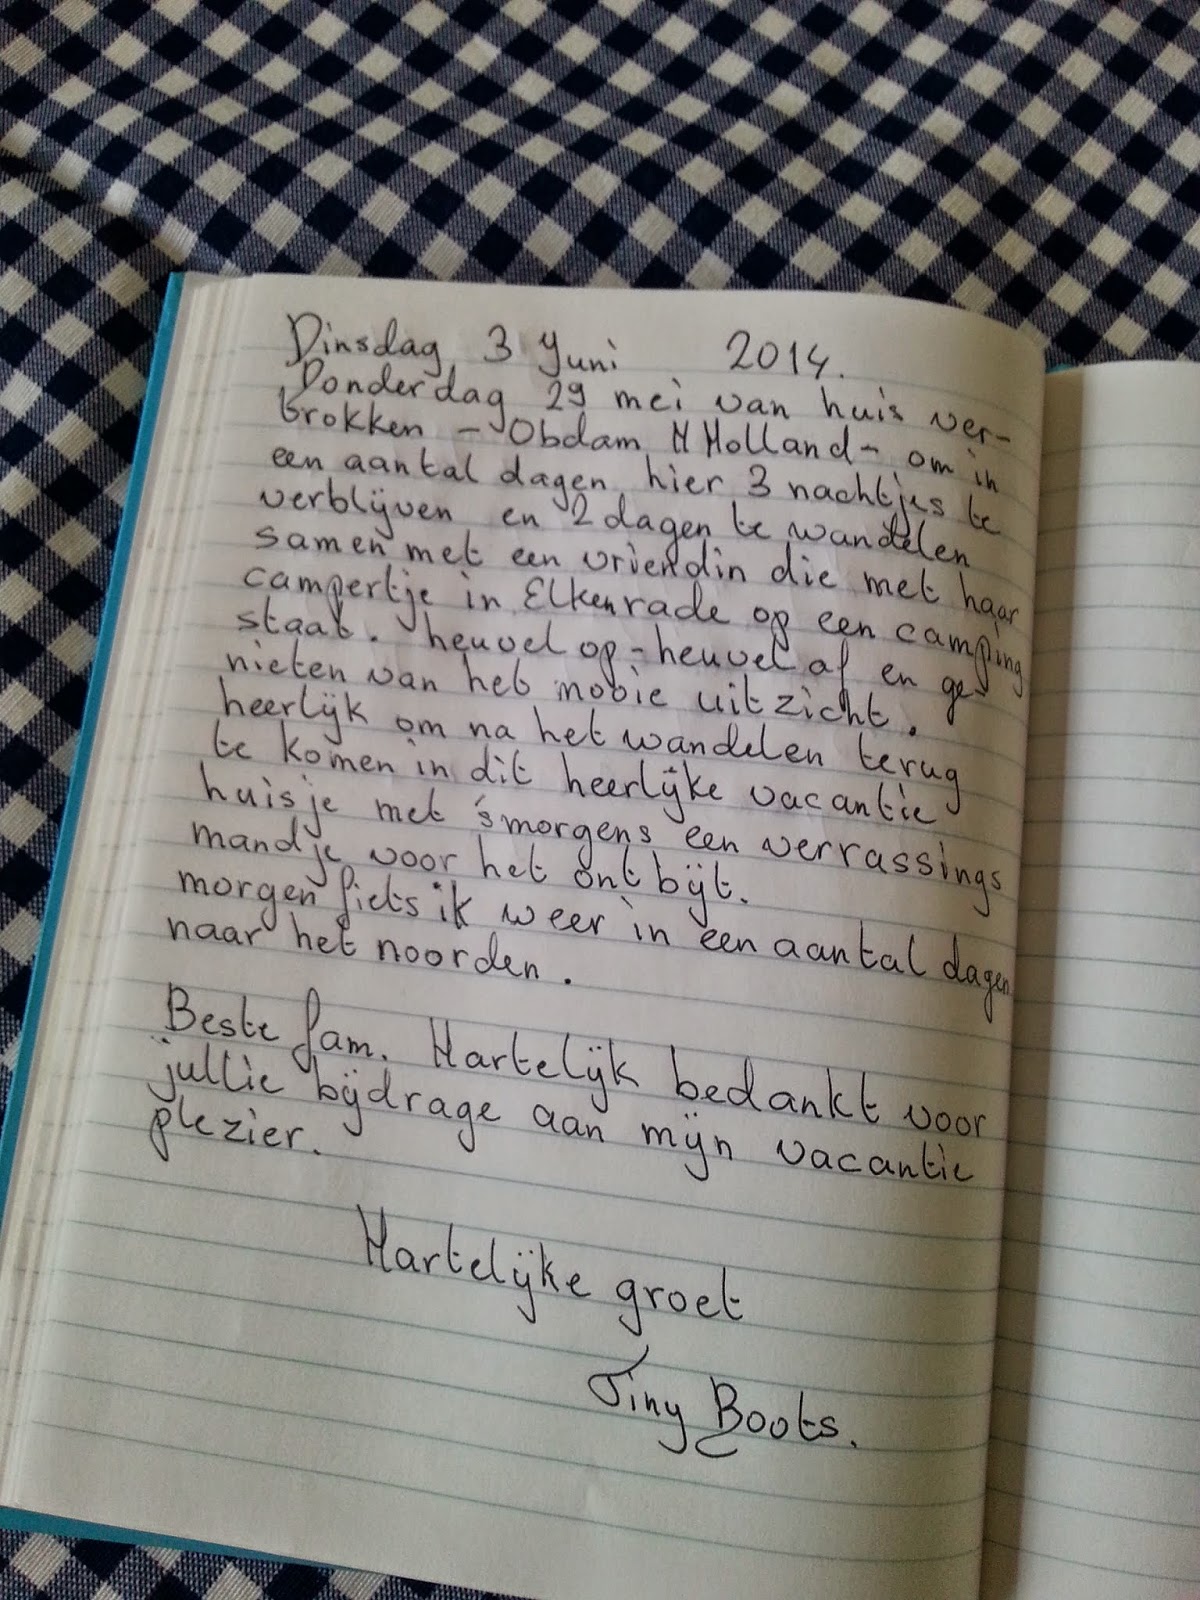 Dinsdag 3 Juni 2014.
Donderdag 29 mei van huis ver-
trokken - Obdam N Holland - om in
een aantal dagen hier 3 nachtjes te
verblijven en 2 dagen te wandelen
samen met een vriendin die met haar
campertje in Elkenrade op een camping
staat. heuvel op - heuvel af en ge-
nieten van het mooie uitzicht.
heerlijk om na het wandelen terug
te komen in dit heerlijke vacantie
huisje met 's morgens een verrassings
mandje voor het ontbijt.
morgen fiets ik weer in een aantal dagen
naar het noorden.
Beste fam. Hartelijk bedankt voor
jullie bijdrage aan mijn vacantie
plezier.
Hartelijke groet
Tiny Boots.